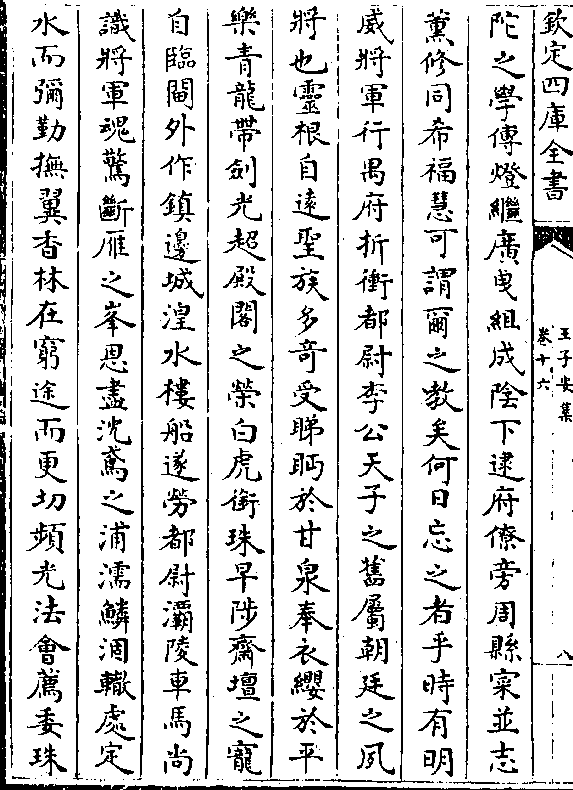 欽定四庫全書
王子安集
卷十六
八
陀之學傳燈繼廣曳組成陰下逮府僚旁周縣寀並志
薰修同希福慧可謂爾之教矣何日忘之者乎時有明
威將軍行禺府折衝都尉李公天子之舊屬朝廷之夙
將也靈根自遠聖族多奇受睇眄於甘泉奉衣纓於平
樂青龍帶劍光超殿閣之榮白虎銜珠早陟齋壇之寵
自臨閫外作鎮邊城湟水樓船遂勞都尉灞陵車馬尚
識將軍魂驚斷雁之峯思盡沈鳶之浦濡鱗涸轍處定
水而彌勤撫翼杳林在窮途而更切頻光法會薦委珠